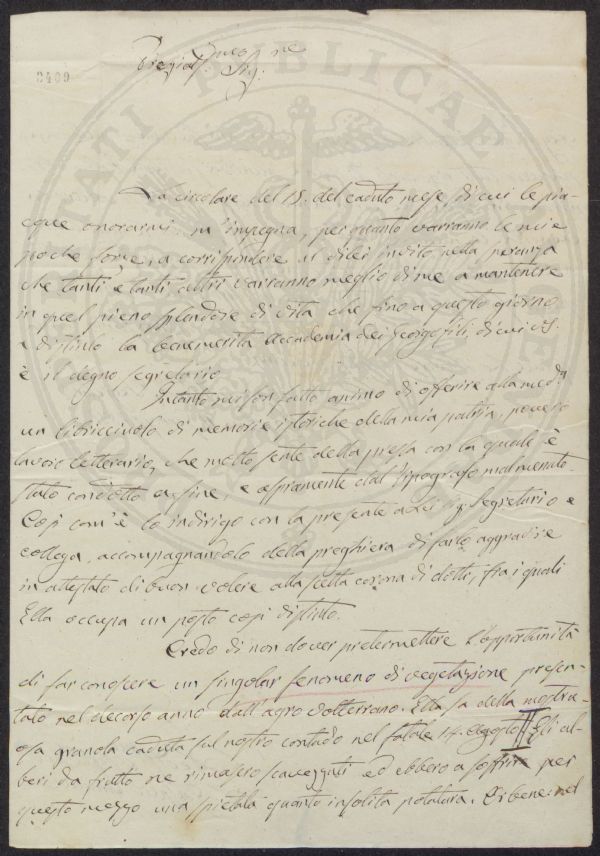 2409
Pregiatmo Sigre
La circolare del 15. del caduto mese, di cui le pia-
cque onorarmi, m'impegna, per quanto varranno le mie
poche forze, a corrispondere al dilei invito nella speranza
che tanti e tanti altri varranno meglio di me a mantenere
in quel pieno splendore di vita che fino a questo giorno
distinto la benemerita Accademia dei Georgofili, di cui VS.
è il degno segretario
Intanto mi son fatto animo di offerire alla medma
un libricciuolo di memorie istoriche della mia patria, povero
lavoro letterario, che molto sente della pressa con la quale è
stato condotto a fine, e aspramente dal Tipografo malmenato.
Così com'è lo indirigo con la presente a Lei Sig. Segretario e
collega, accompagnandolo della preghiera di farlo aggradire
in attestato di buon volere alla scelta corona di dotti, fra i quali
Ella occupa un posto così distinto.
Credo di non dover pretermettere l'opportunità
di far conoscere un singolar fenomeno di vegetazione presen-
tato nel decorso anno dall'agro volterrano. Ella sa della mostru-
osa granola caduta sul nostro contado nel fatale 14. Agosto. Gli al-
beri da frutto ne rimasero scavezzati ed ebbero a soffrire per
questo mezzo una spietata quanto insolita potatura. Ebbene: nel